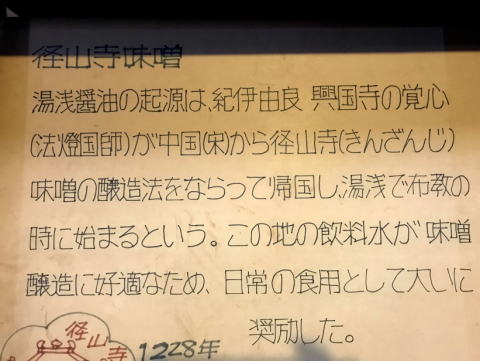 径山寺味噌
湯浅醤油の起源は、紀伊由良 興国寺の覚心
(法燈国師)が中国(宋)から径山寺(きんざんじ)
味噌の醸造法をならって帰国し、湯浅で布教の
時に始まるという。この地の飲料水が味噌
醸造に好適なため、日常の食用として大いに
奨励した。
径山寺
1228年